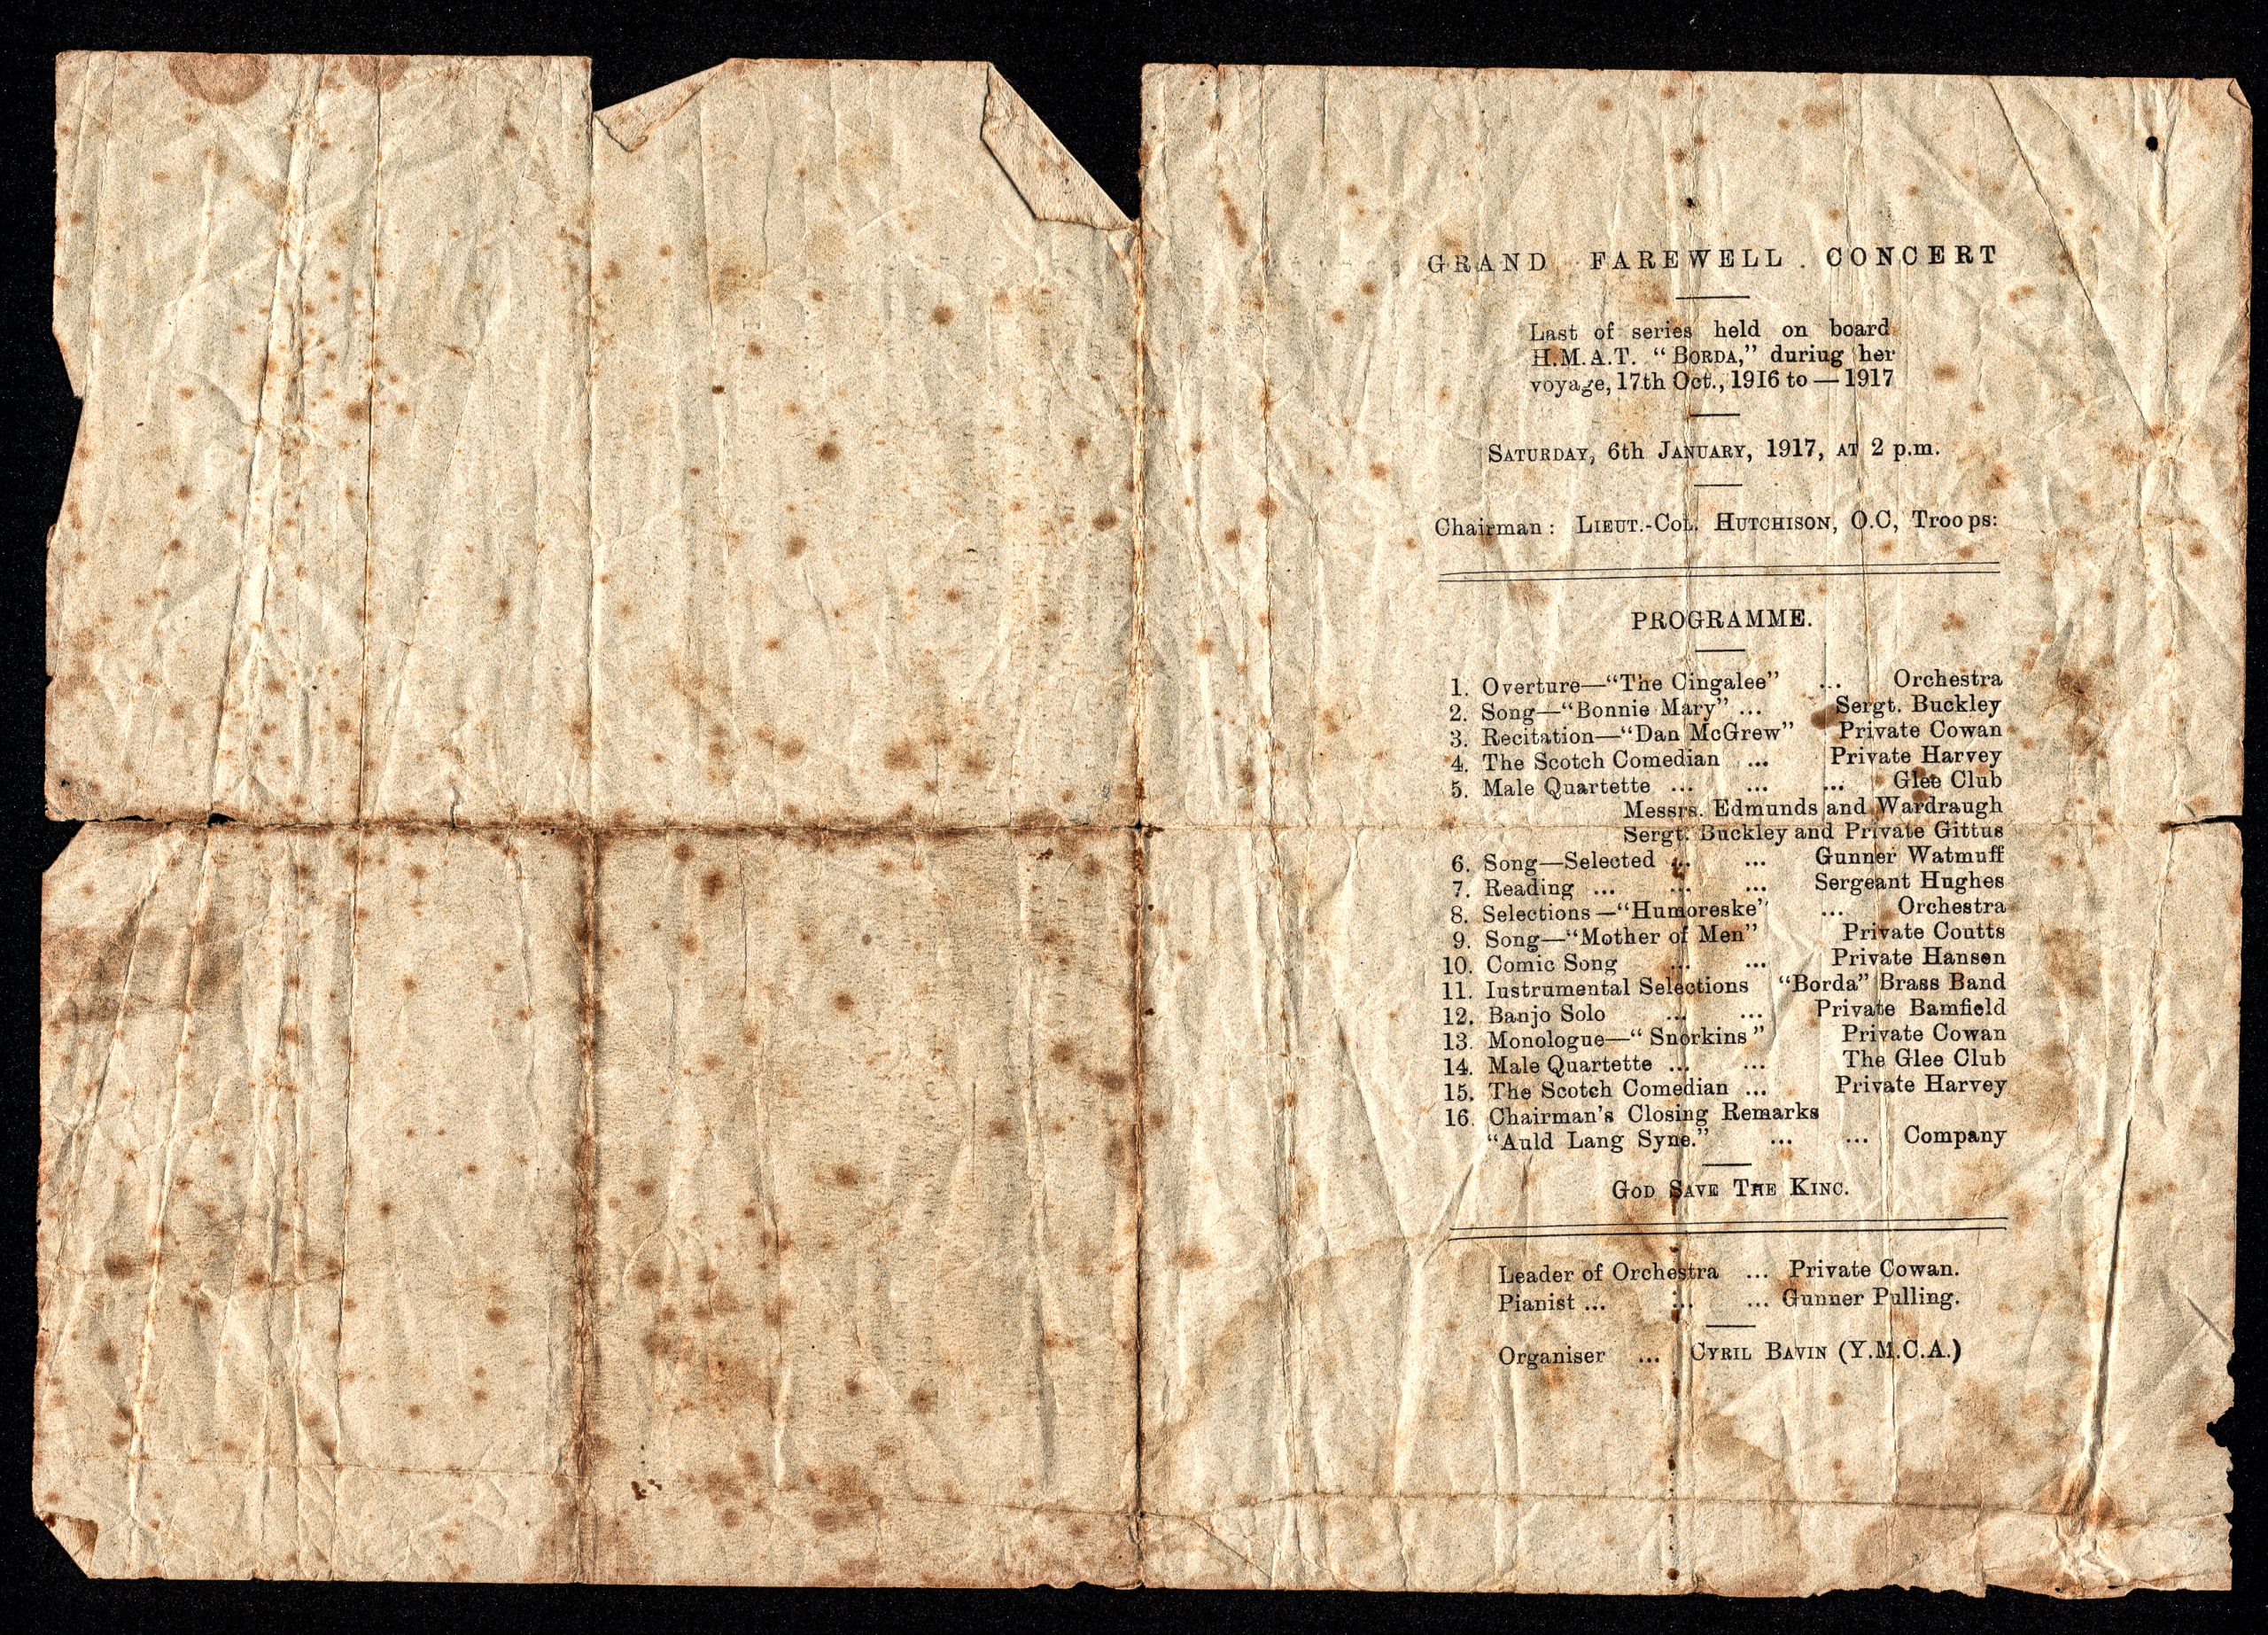 GRAND FAREWELL CONCERT
Last of series held on board
H.M.A.T. “BORDA,” duriug her
voyage, 17th Oct., 1916 to — 1917
SATURDAY, 6th JANUARY, 1917, AT 2 p.m.
Chairman: LIEUT.-COL. HUTCHISON, O.C, Troops:
PROGRAMME.
1. Overture—“The Cingalee” ... Orchestra
2. Song—“Bonnie Mary” ... Sergt. Buckley
3. Recitation—“Dan McGrew” Private Cowan
4. The Scotch Comedian ... Private Harvey
5. Male Quartette ... ... ... Glee Club
Messrs. Edmunds and Wardraugh
Sergt. Buckley and Private Gittus
6. Song—Selected ... ... Gunner Watmuff
7. Reading ... ... ... Sergeant Hughes
8. Selections—“Humoreske” ... Orchestra
9. Song—“Mother of Men” Private Coutts
10. Comic Song ... ... Private Hansen
11. Iustrumental Selections “Borda” Brass Band
12. Banjo Solo ... ... Private Bamfield
13. Monologue—“Snorkins” Private Cowan
14. Male Quartette ... ... The Glee Club
15. The Scotch Comedian ... Private Harvey
16. Chairman's Closing Remarks
“Auld Lang Syne.” ... ... Company
GOD SAVE THE KINC.
Leader of Orchestra ... Private Cowan.
Pianist ... ... ... Gunner Pulling.
Organiser ... CYRIL BAVIN (Y.M.C.A.)